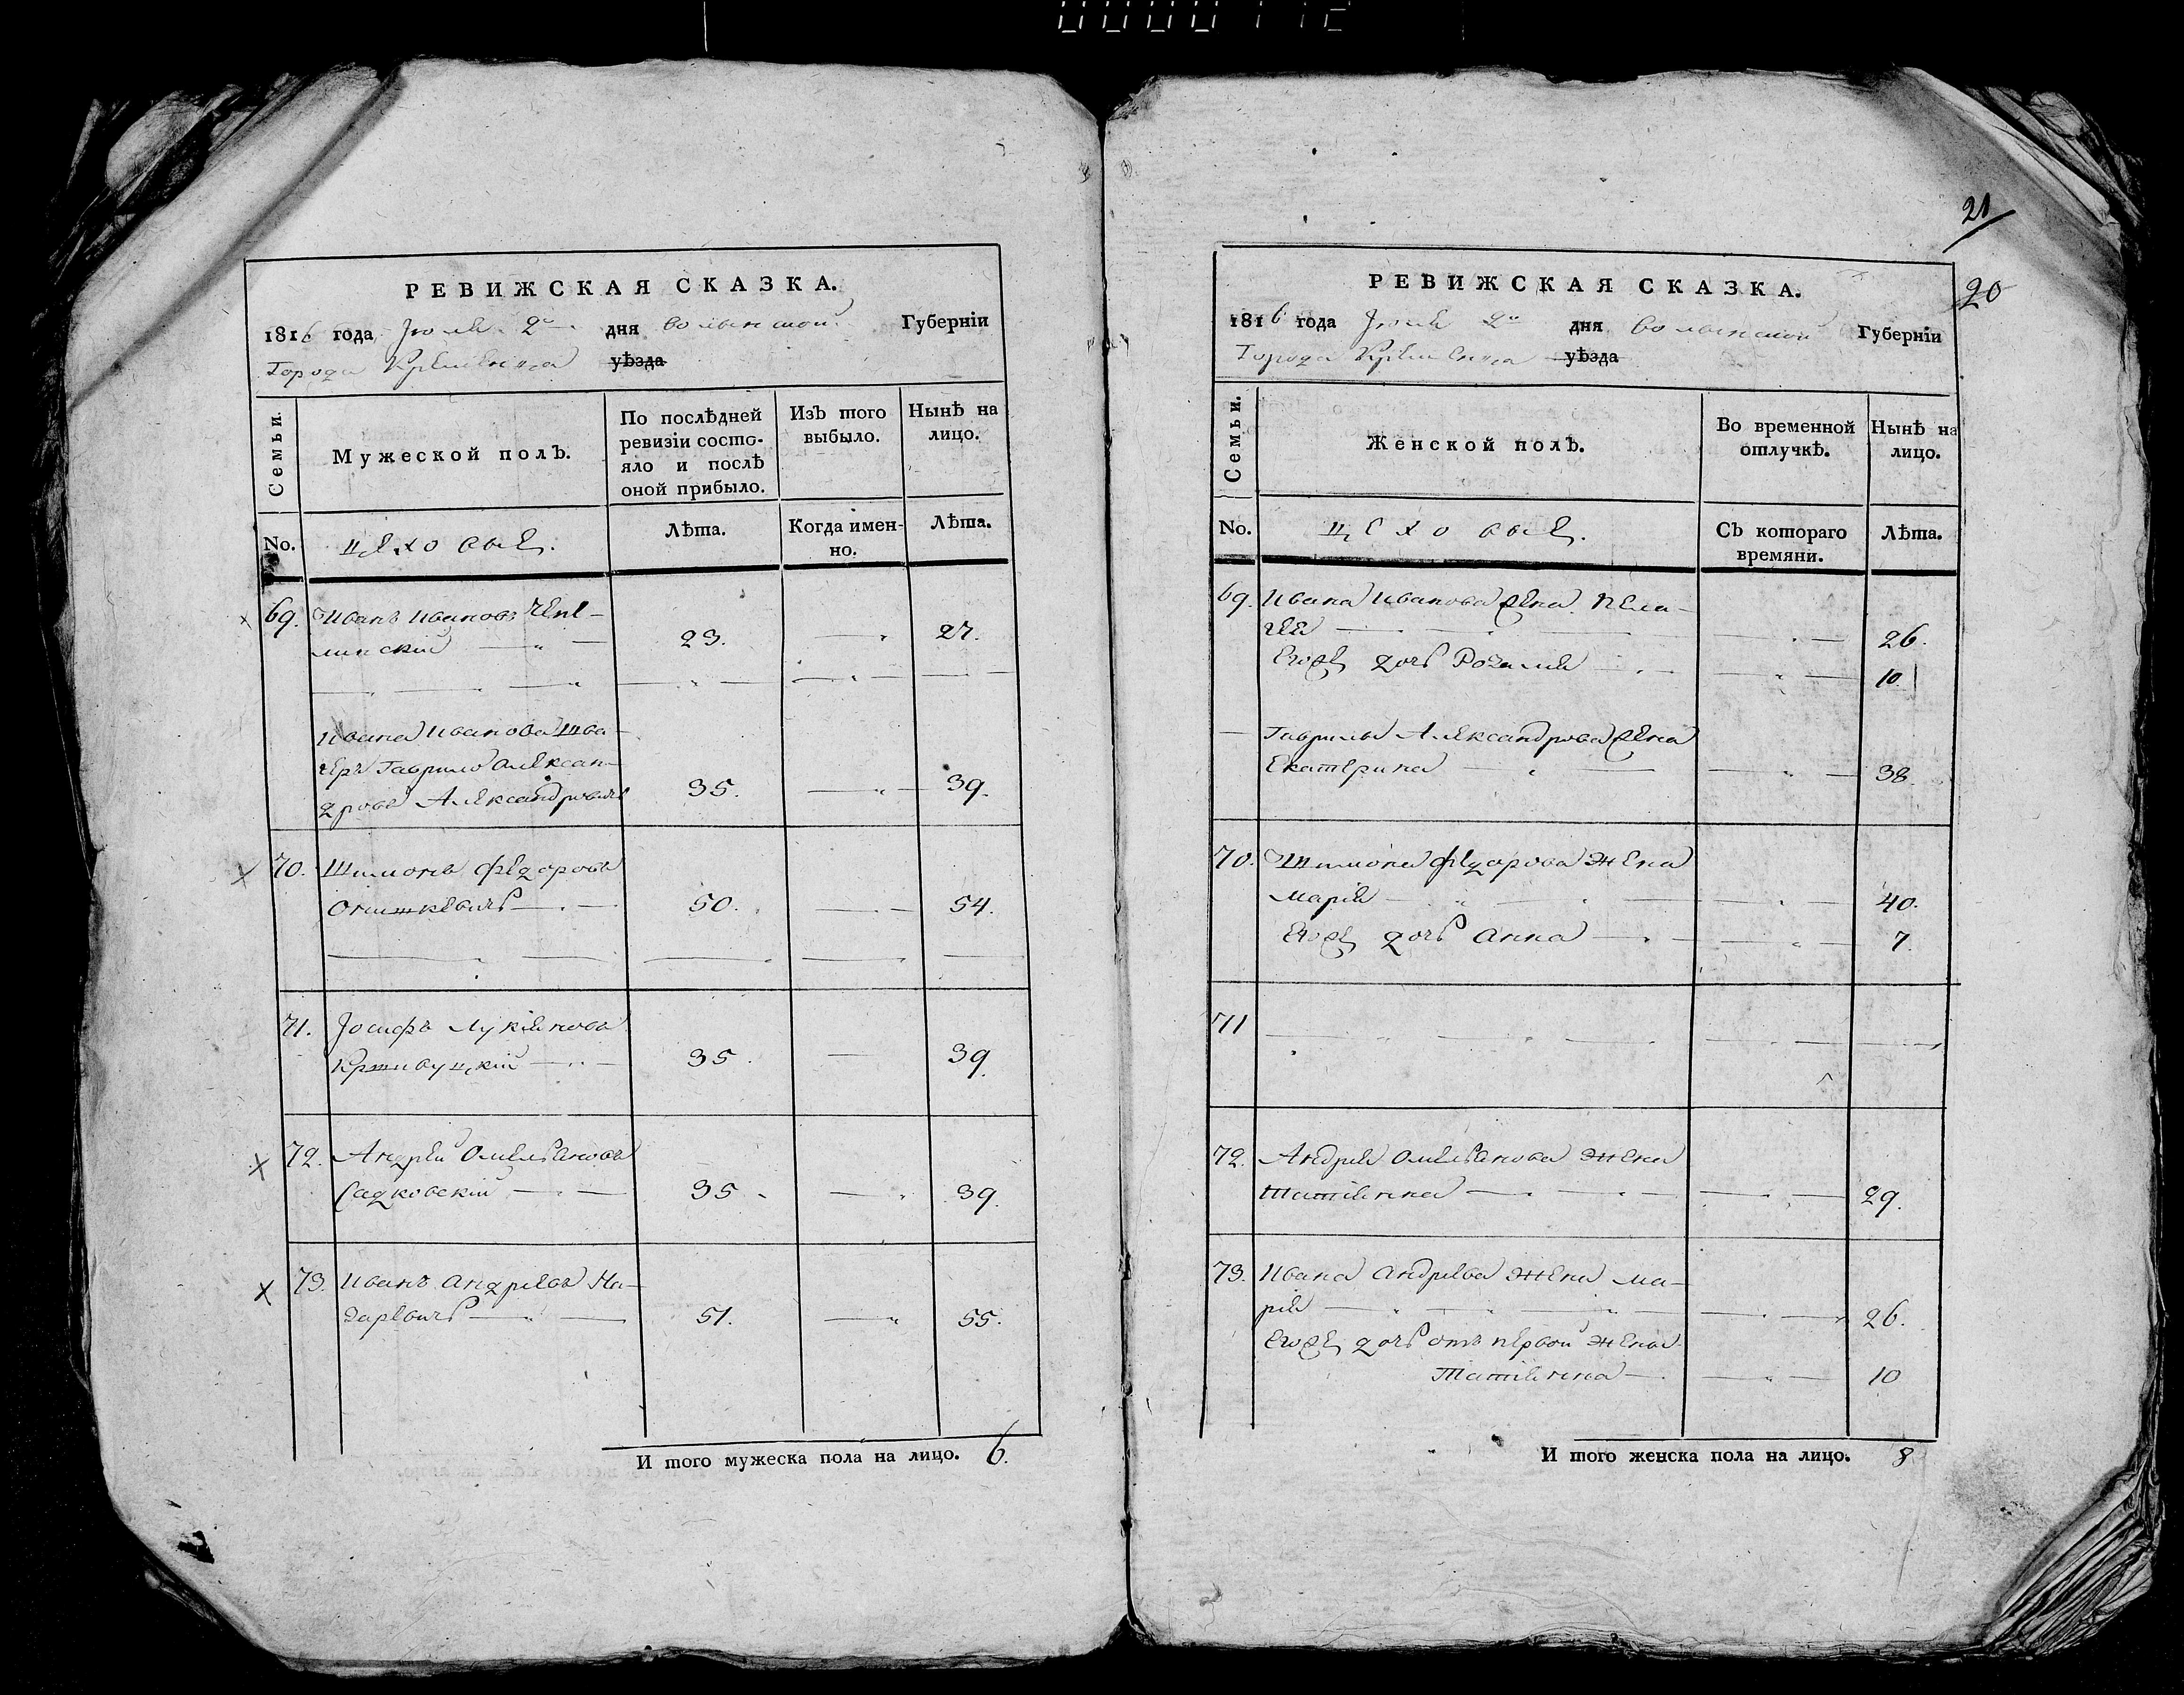 РЕВИЖСКАЯ СКАЗКА.
1816 года Іюля 2го дня Волынской Губерніи
Города Кременца уѣзда
Семьи.
Мужеской полъ.
По послѣдней ревизіи состо-
яло и послѣ
оной прибыло.
Изъ того
выбыло.
Нынѣ на
лицо.
No.
цеховые.
Лѣта.
Когда имен-
но.
Лѣта.
69. Иванъ Ивановъ Чепе-
линскій 23. 27.
Ивана Иванова Шва-
геръ Гаврило Алексан-
дровъ Александровичъ 35. 39.
70. Шимонъ Федоровъ
50. 54.
71. Іосифъ Лукіяновъ
35. 39.
72. Андрей Омельяновъ
Садковскій 35. 39.
73. Иванъ Андреевъ На-
заревичъ 51. 55.
И того мужеска пола на лицо. 6.
21
20
РЕВИЖСКАЯ СКАЗКА.
1816 года Іюля 2го дня Волынской Губерніи
Города Кременца уѣзда
Семьи.
Женской полъ.
Во временной
отлучкѣ.
Нынѣ на
лицо.
No.
цеховые.
Съ котораго
времяни.
Лѣта.
69. Ивана Иванова жена Пела-
гея 26.
Егоже дочь Розалия 10.
Гаврилы Александрова жена
Екатерина 38.
70. Шимона Федорова жена
Марія 40.
Егоже дочь Анна 7.
71
72. Андрея Омельянова жена
Татіянна 29.
73. Ивана Андреева жена Ма-
рія 26.
Егоже дочь отъ первой жены
Татіянна 10
И того женска пола на лицо. 8